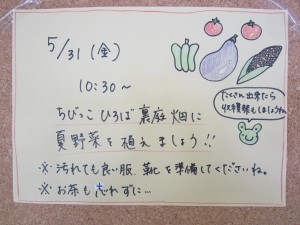 5/31（金）
10:30～
ちびっこひろば裏庭畑に
夏野菜を植えましょう!!
※汚れても良い服、靴を準備してくださいね。
※お茶も忘れずに…
たくさん出来たら
収穫祭もしましょうね